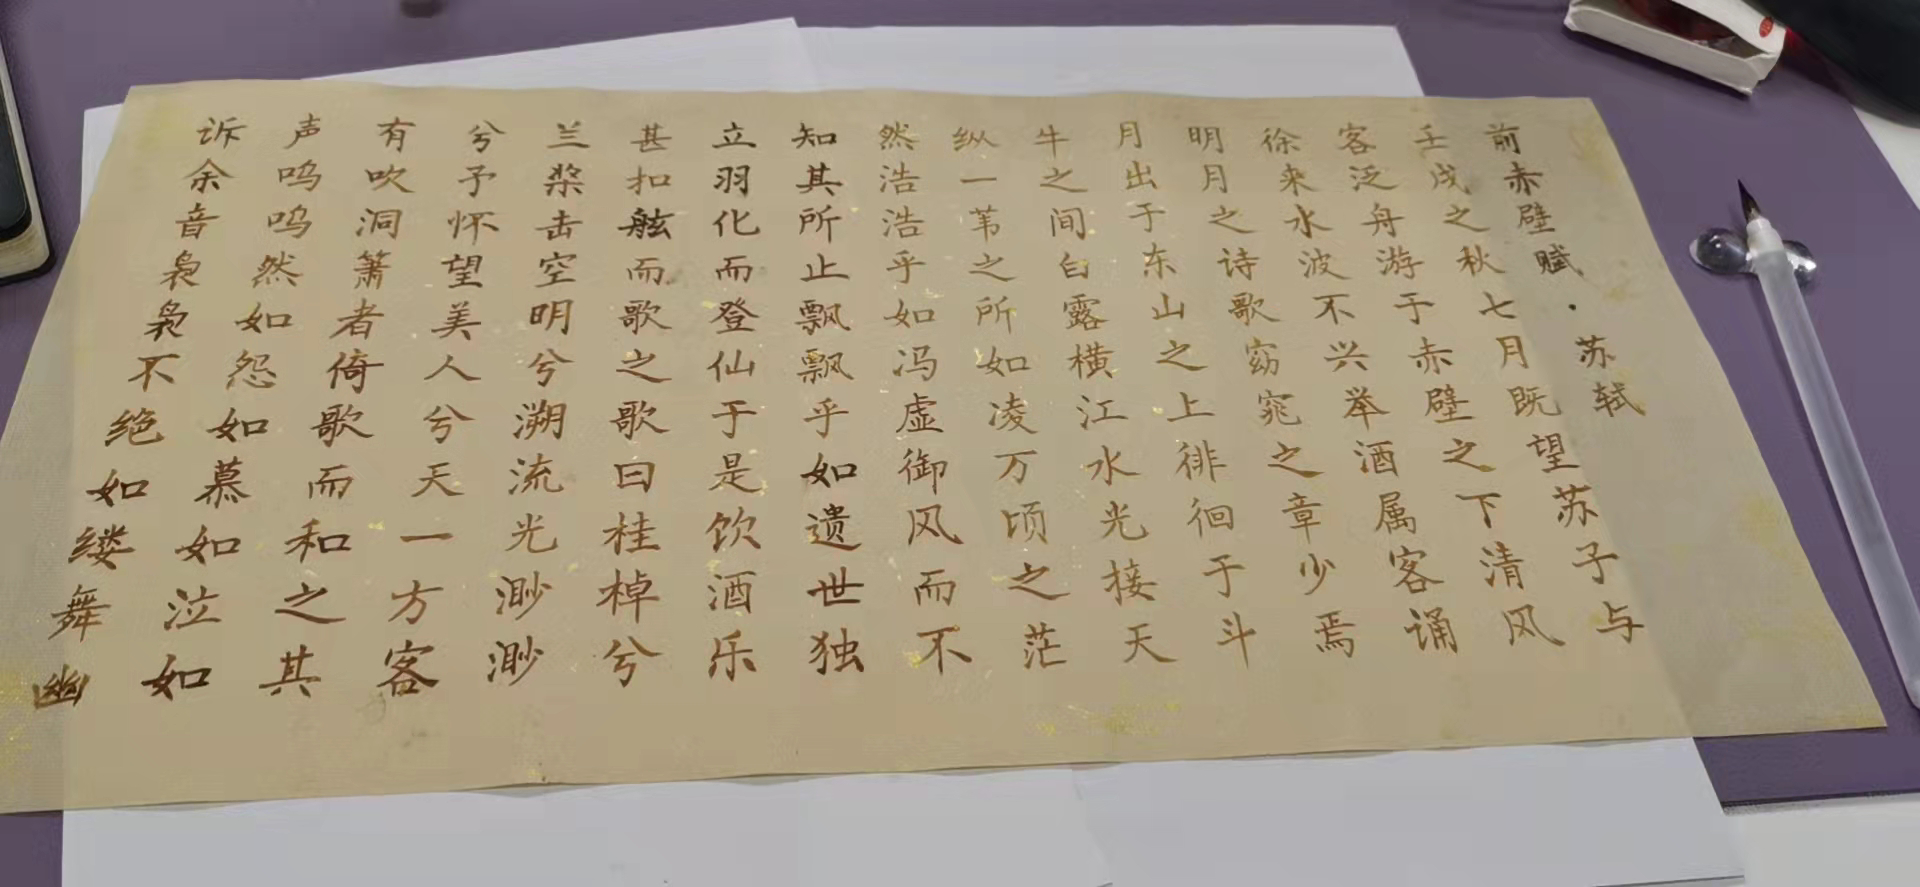 前赤壁赋·苏轼
壬戌之秋七月既望苏子与
客泛舟游于赤壁之下清风
徐来水波不兴举酒属客诵
明月之诗歌窈窕之章少焉
月出于东山之上徘徊于斗
牛之间白露横江水光接天
纵一苇之所如凌万顷之茫
然浩浩乎如冯虚御风而不
知其所止飘飘乎如遗世独
立羽化而登仙于是饮酒乐
甚扣舷而歌之歌曰桂棹兮
兰桨击空明兮溯流光渺渺
兮予怀望美人兮天一方客
有吹洞箫者倚歌而和之其
声呜呜然如怨如慕如泣如
诉余音袅袅不绝如缕舞幽